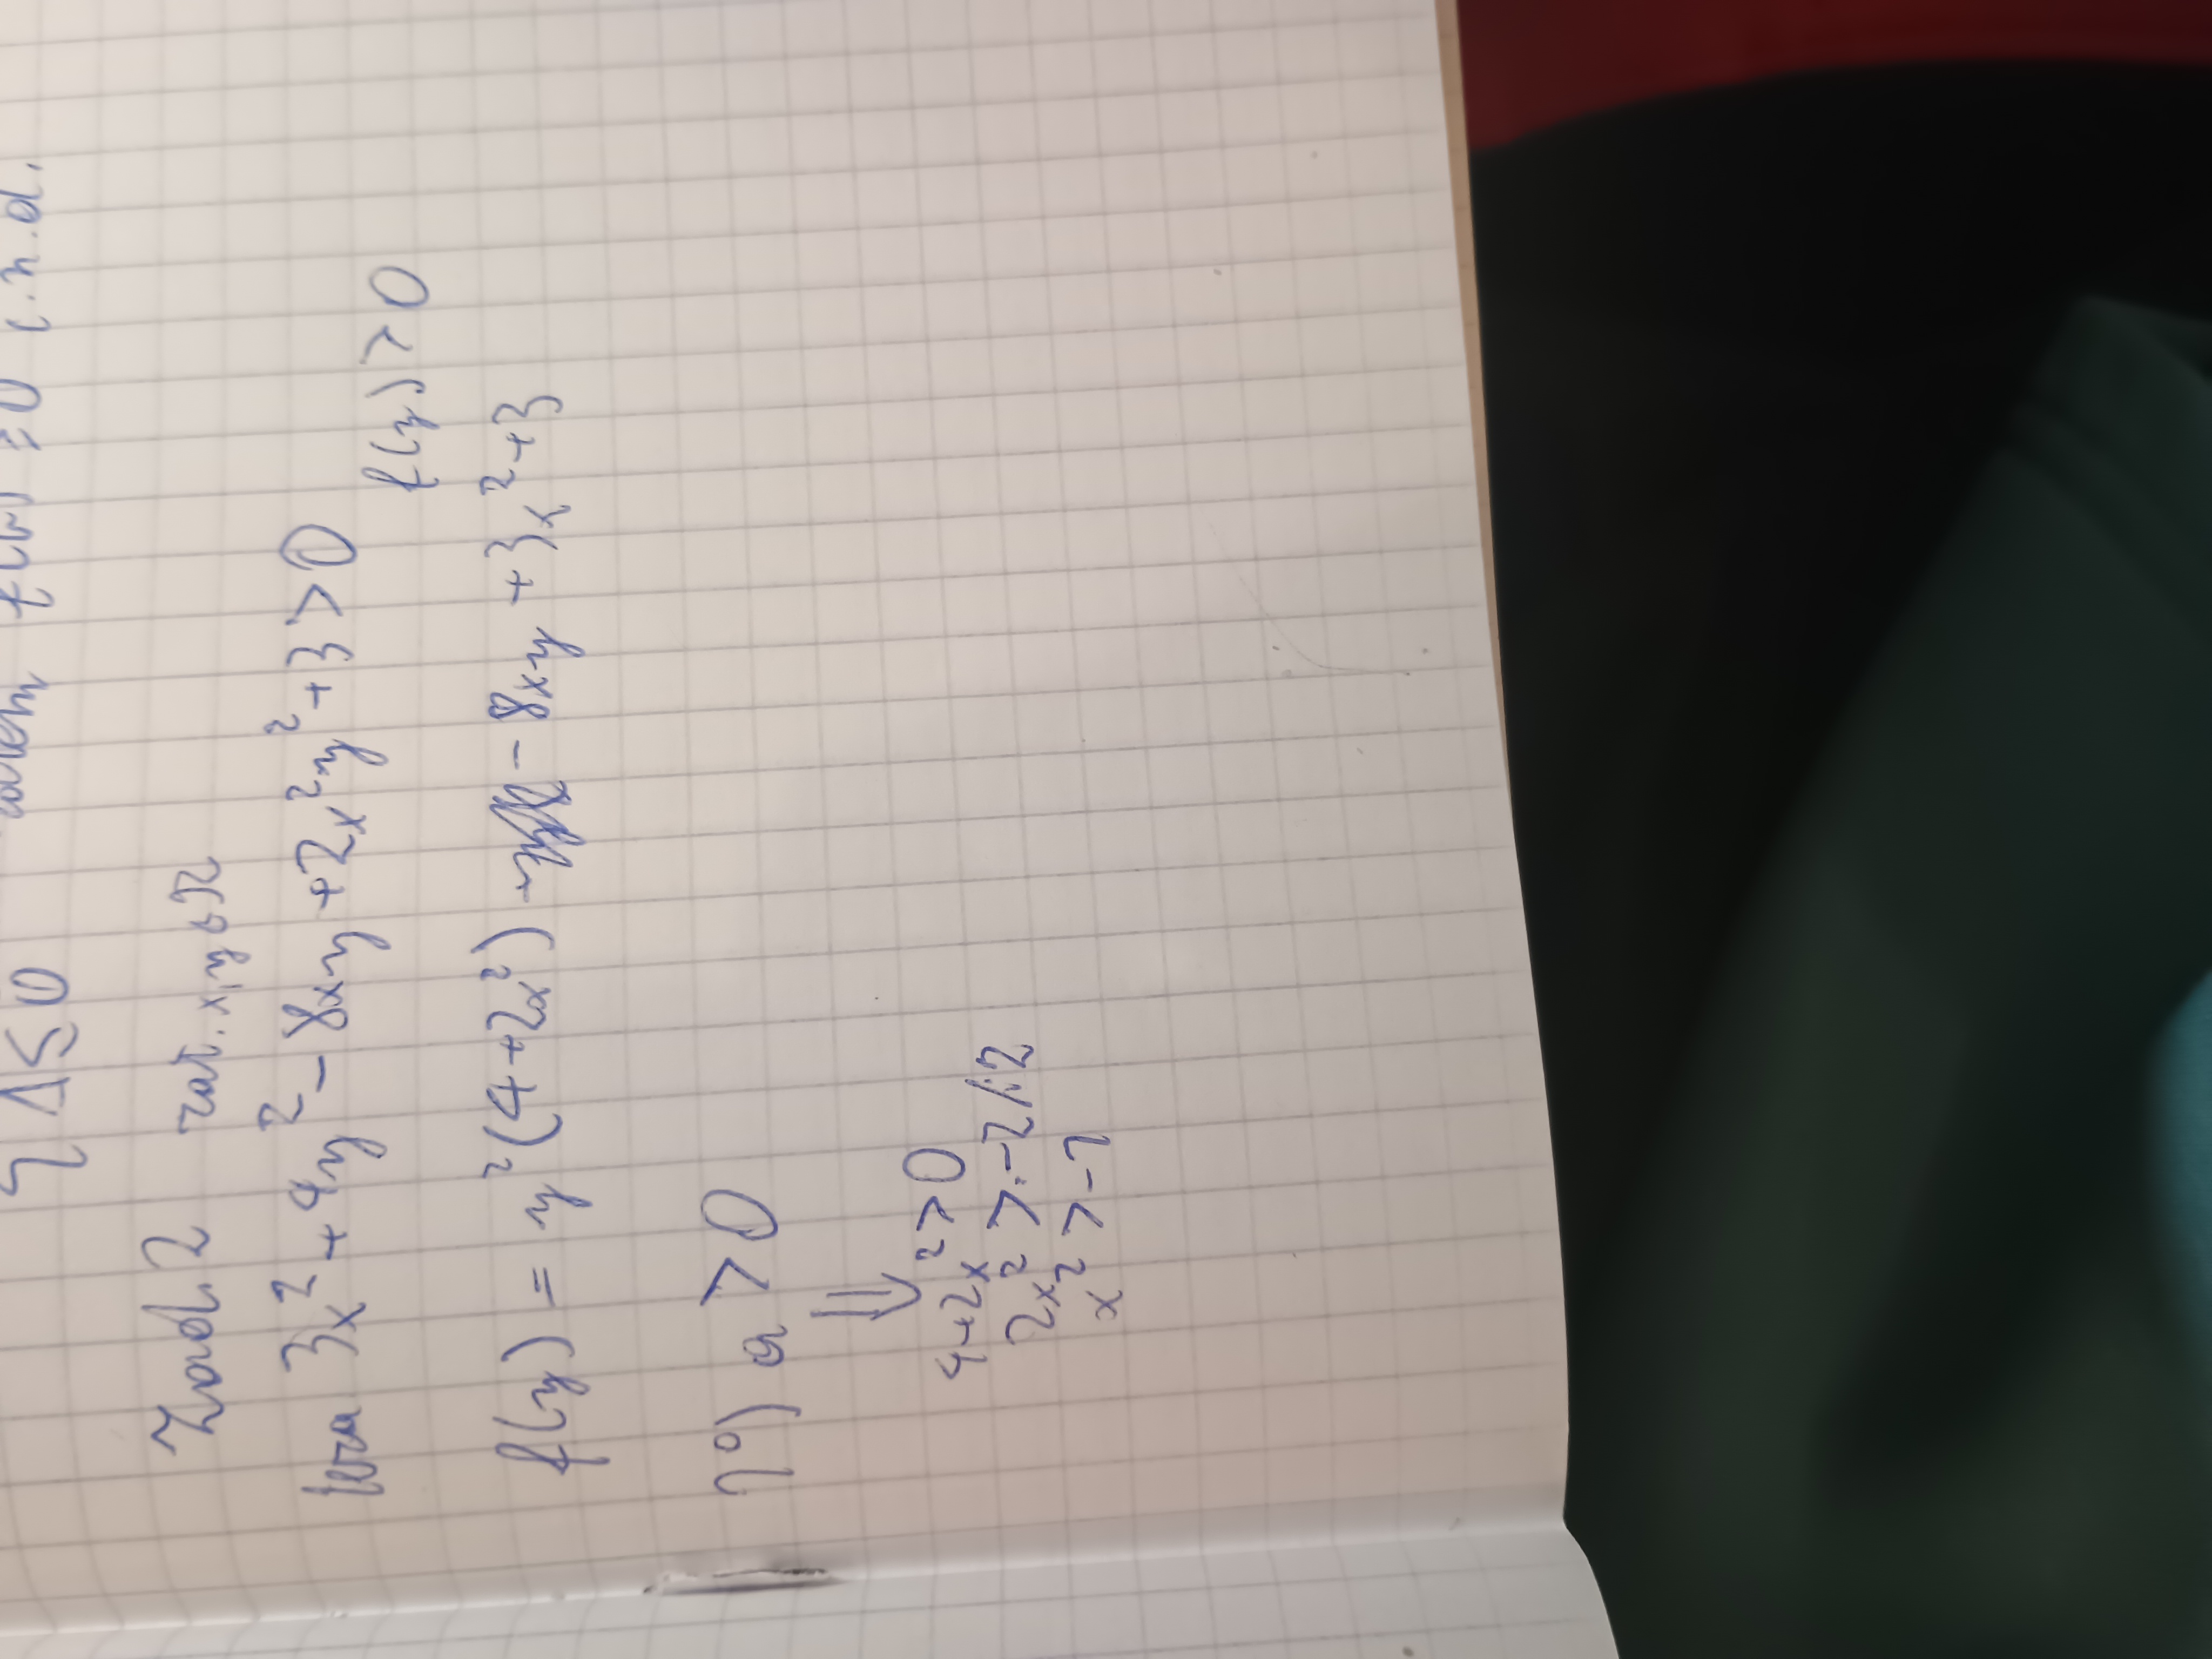 Δ ≤ 0
f(x) ≥ 0 c.n.d.
Zad. 2 zał. x,y ∈ R
teza 3x² + 4y² - 8xy + 2x²y² + 3 > 0
f(y) > 0
f(y) = y²(4+2x²) - 8xy + 3x² + 3
1°) a > 0
⇓
4+2x² > 0
2x² > -2 /:2
x² > -1